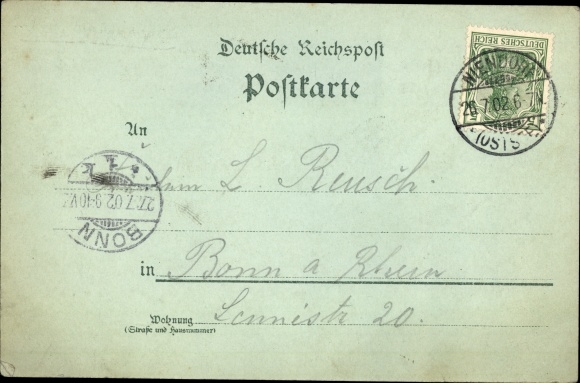 Deutsche Reichspost
Postkarte
DEUTSCHES REICH
NIENDORF
26.7.02.6-7N
(OSTSEE)
An
Herrn L. Reusch.
27.7.02.9-10V.
BONN
in Bonn a Rhein
Lennéstr 20.
Wohnung
(Straße und Hausnummer)